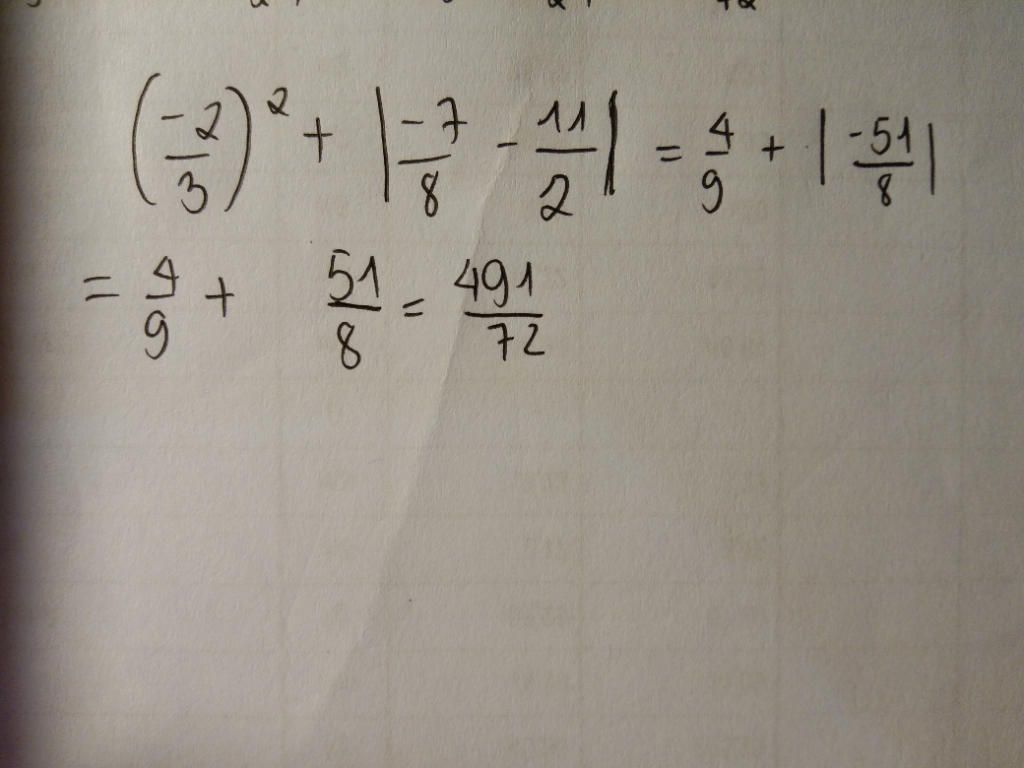 (-2/3)² + |-7/8 - 11/2| = 4/9 + |-51/8|
= 4/9 + 51/8 = 491/72